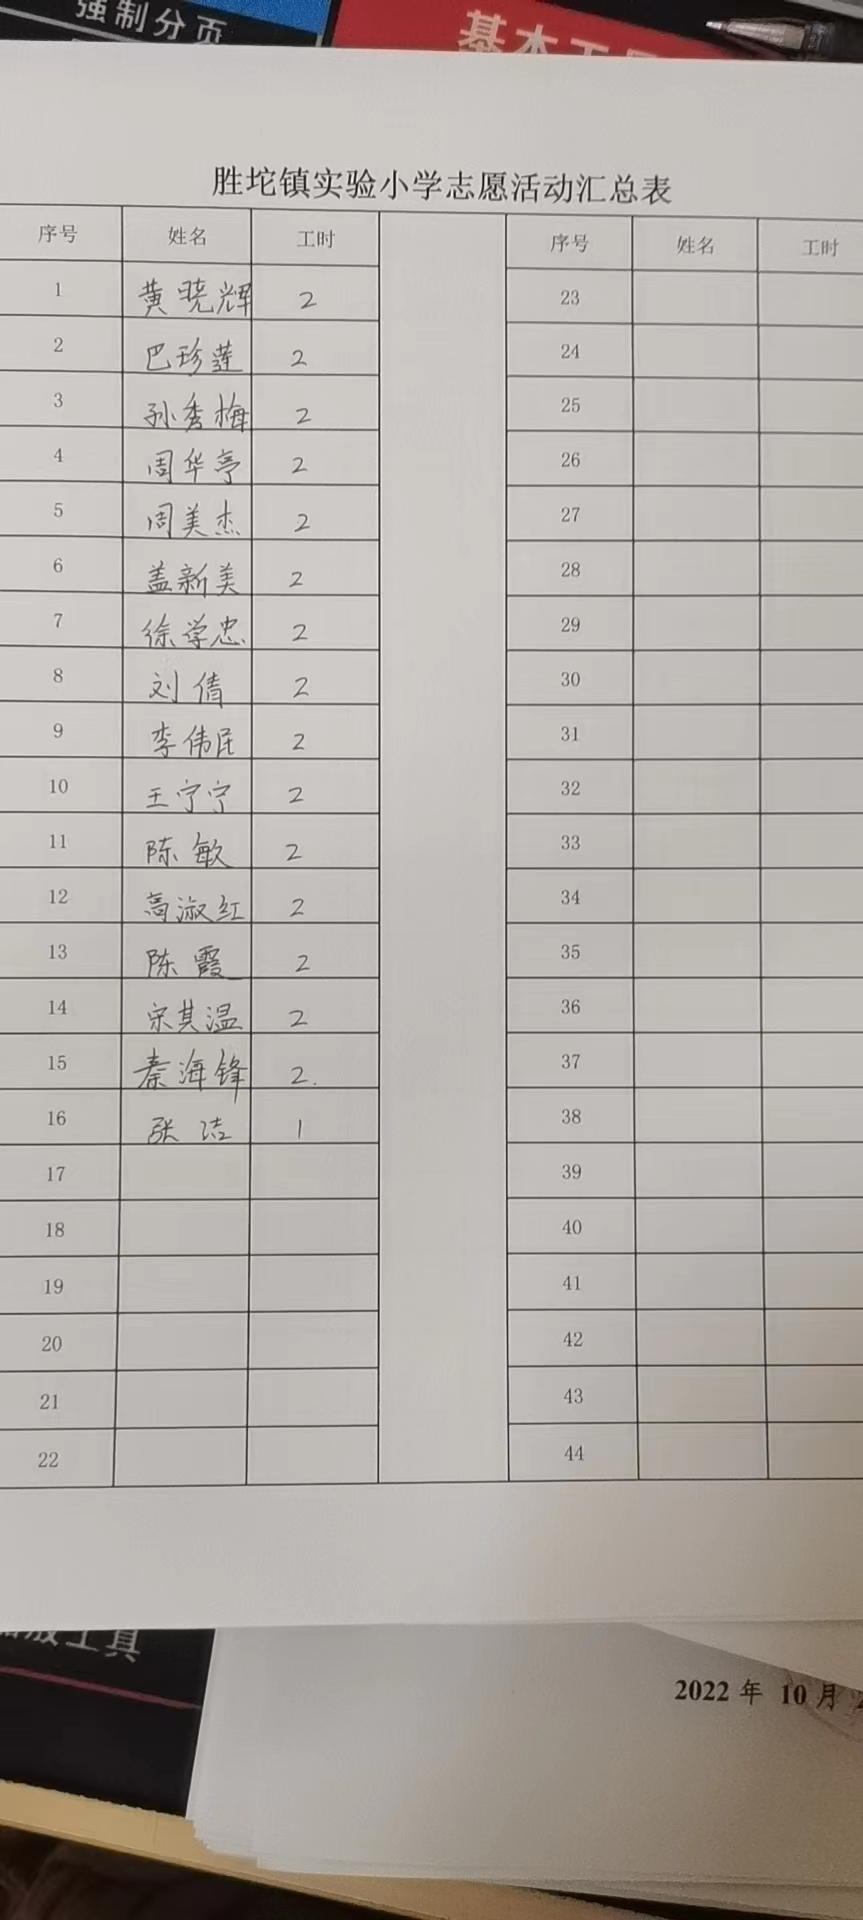 强制分页
基本工具
胜坨镇实验小学志愿活动汇总表
序号 姓名 工时 序号 姓名 工时
1 黄晓辉 2 23
2 巴珍莲 2 24
3 孙秀梅 2 25
4 周华亭 2 26
5 周美杰 2 27
6 盖新美 2 28
7 徐学忠 2 29
8 刘倩 2 30
9 李伟民 2 31
10 王宁宁 2 32
11 陈敏 2 33
12 高淑红 2 34
13 陈霞 2 35
14 宋其温 2 36
15 秦海锋 2. 37
16 张洁 1 38
17 39
18 40
19 41
20 42
21 43
22 44
工具
2022 年 10 月